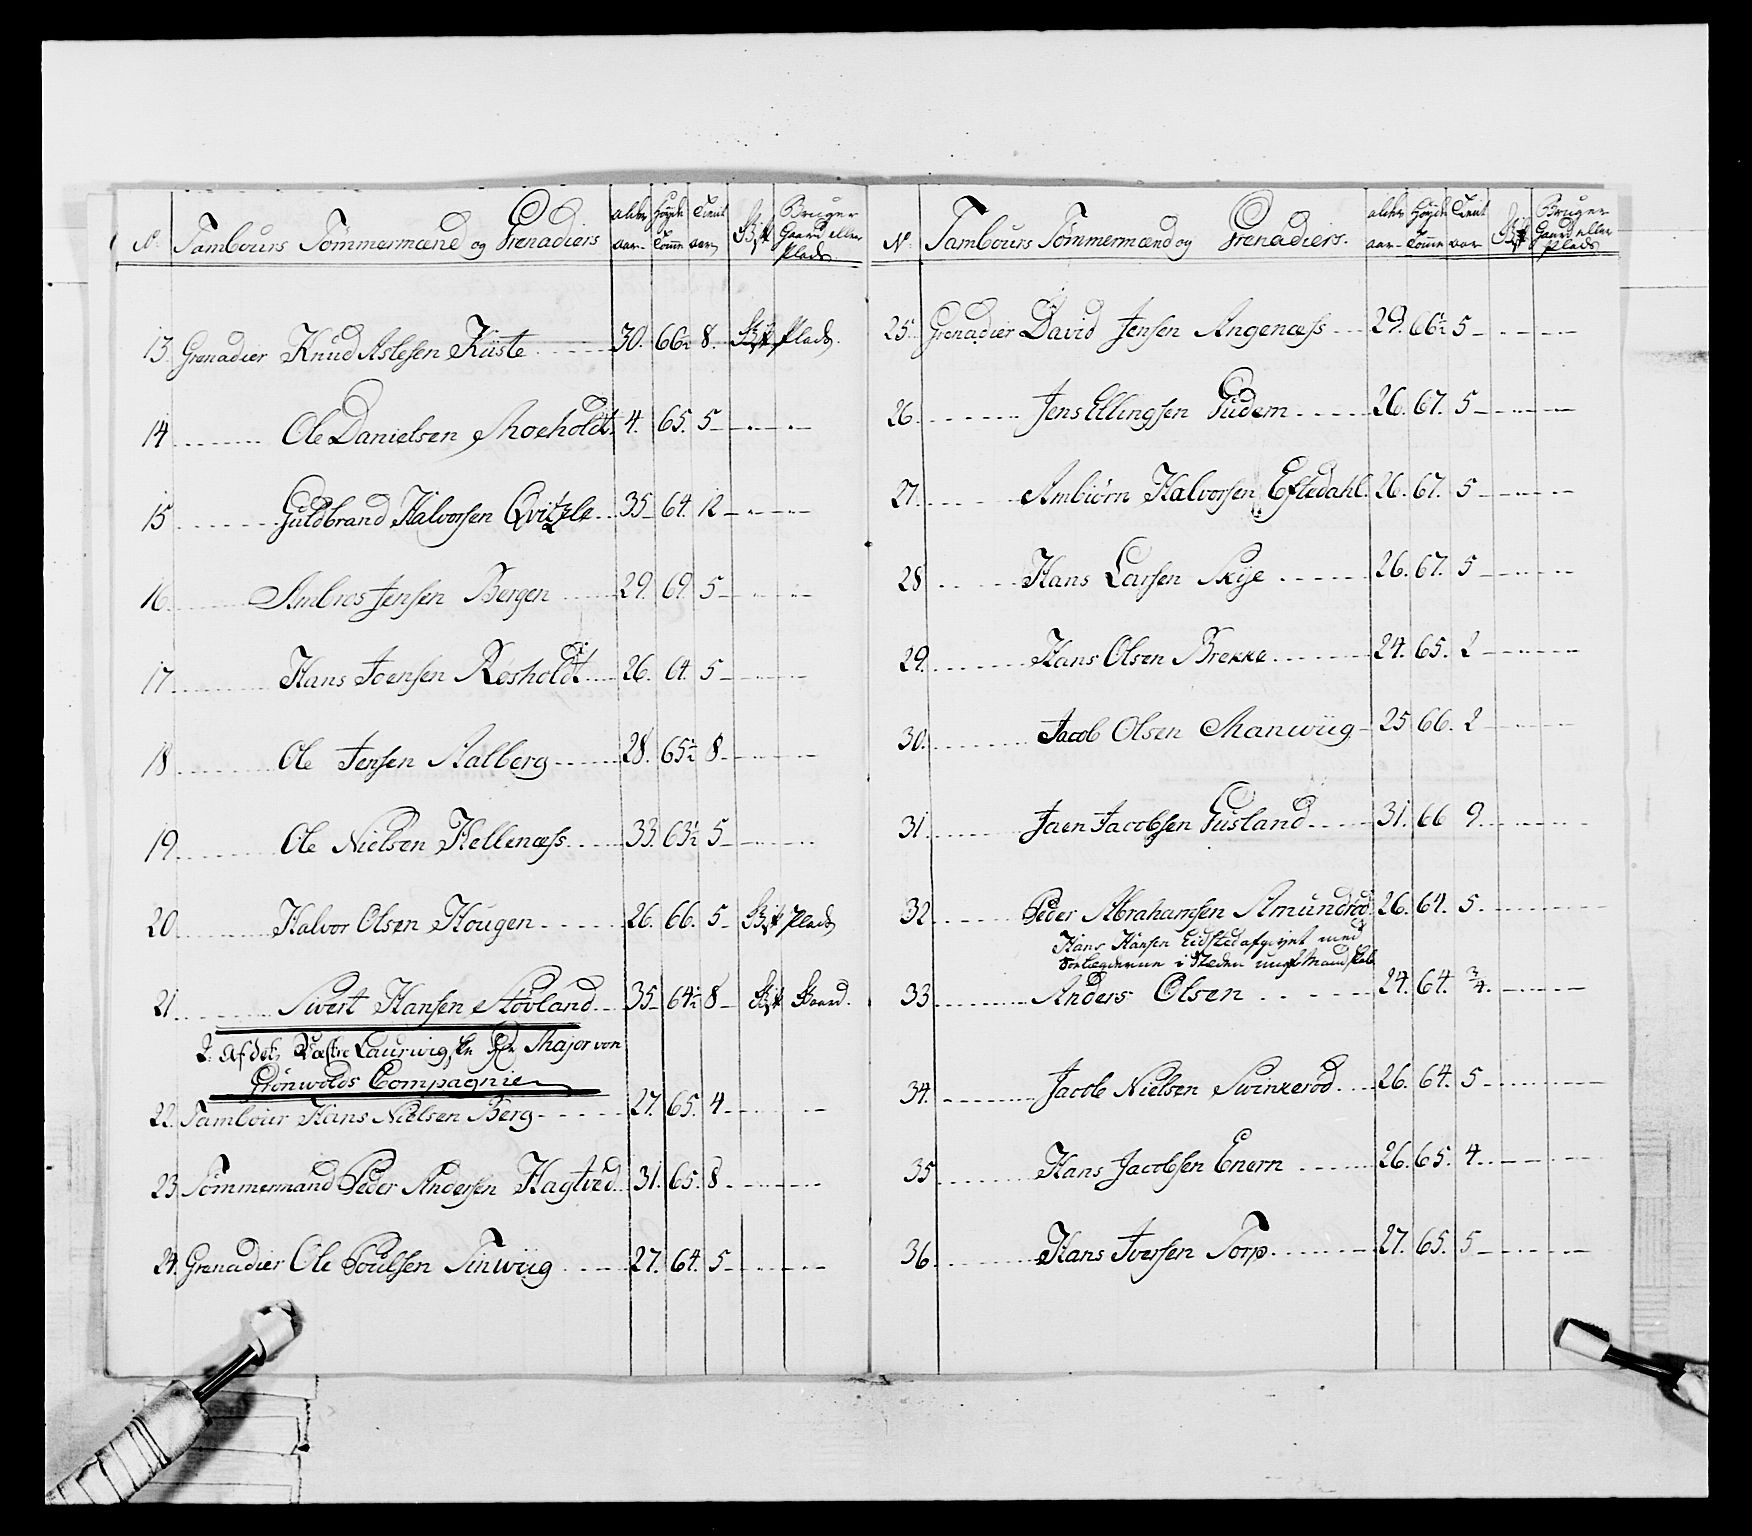 No. Tambours Tømmermænd og Grenadiers alder aar Høyde Tomme Tient aar Gift Bruger Gaard eller Plads
13. Grenadier Knud Aslesen Kiiste 30. 66½ 8. Gift Plads.
14 Ole Danielsen Moeholdt 4. 65. 5
15 Guldbrand Halvorsen Qvitzle 35 64. 12
16. Ambros Jensen Bergen 29. 69. 5
17. Hans Joensen Røsholdt 26. 64. 5
18 Ole Jensen Aalberg 28. 65½ 8
19. Ole Nielsen Hellenæss 33. 63½ 5
20 Halvor Olsen Hougen 26. 66. 5 Gift Plads
21. Sivert Hansen Støvland 35 64½ 8 Gift Gaard.
2. Af det Vestre Laurwigske Major von
Grönwolds Compagnie
22. Tambour Hans Nielsen Berg 27. 65. 4
23. Tømmermand Peder Andersen Hagtved 31. 65. 8
24. Grenadier Ole Poulsen Tinwiig 27. 64. 5
No. Tambours Tømmermænd og Grenadiers. alder aar Høyde Tomme Tient aar Gift Bruger Gaard eller Plads
25. Grenadier David Jensen Angenæss 29. 66½ 5
26. Jens Ellingsen Gudem 26. 67. 5
27. Ambiørn Halvorsen Eftedahl 26. 67. 5
28 Hans Larsen Skye 26. 67. 5
29. Hans Olsen Brekke 24. 65. 2
30. Jacob Olsen Manwiig 25 66. 2
31. Joen Jacobsen Gusland 31. 66 9
32. Peder Abrahamsen Amundrød 26. 64. 5
Hans Hansen Eidsted afgivet med
i Steden Mandskab
33 Anders Olsen 24. 64. ¾.
34. Jacob Nielsen Swinerød 26. 64. 5
35 Hans Jacobsen Enern 26. 65. 4
36. Hans Iversen Torp 27. 65. 5